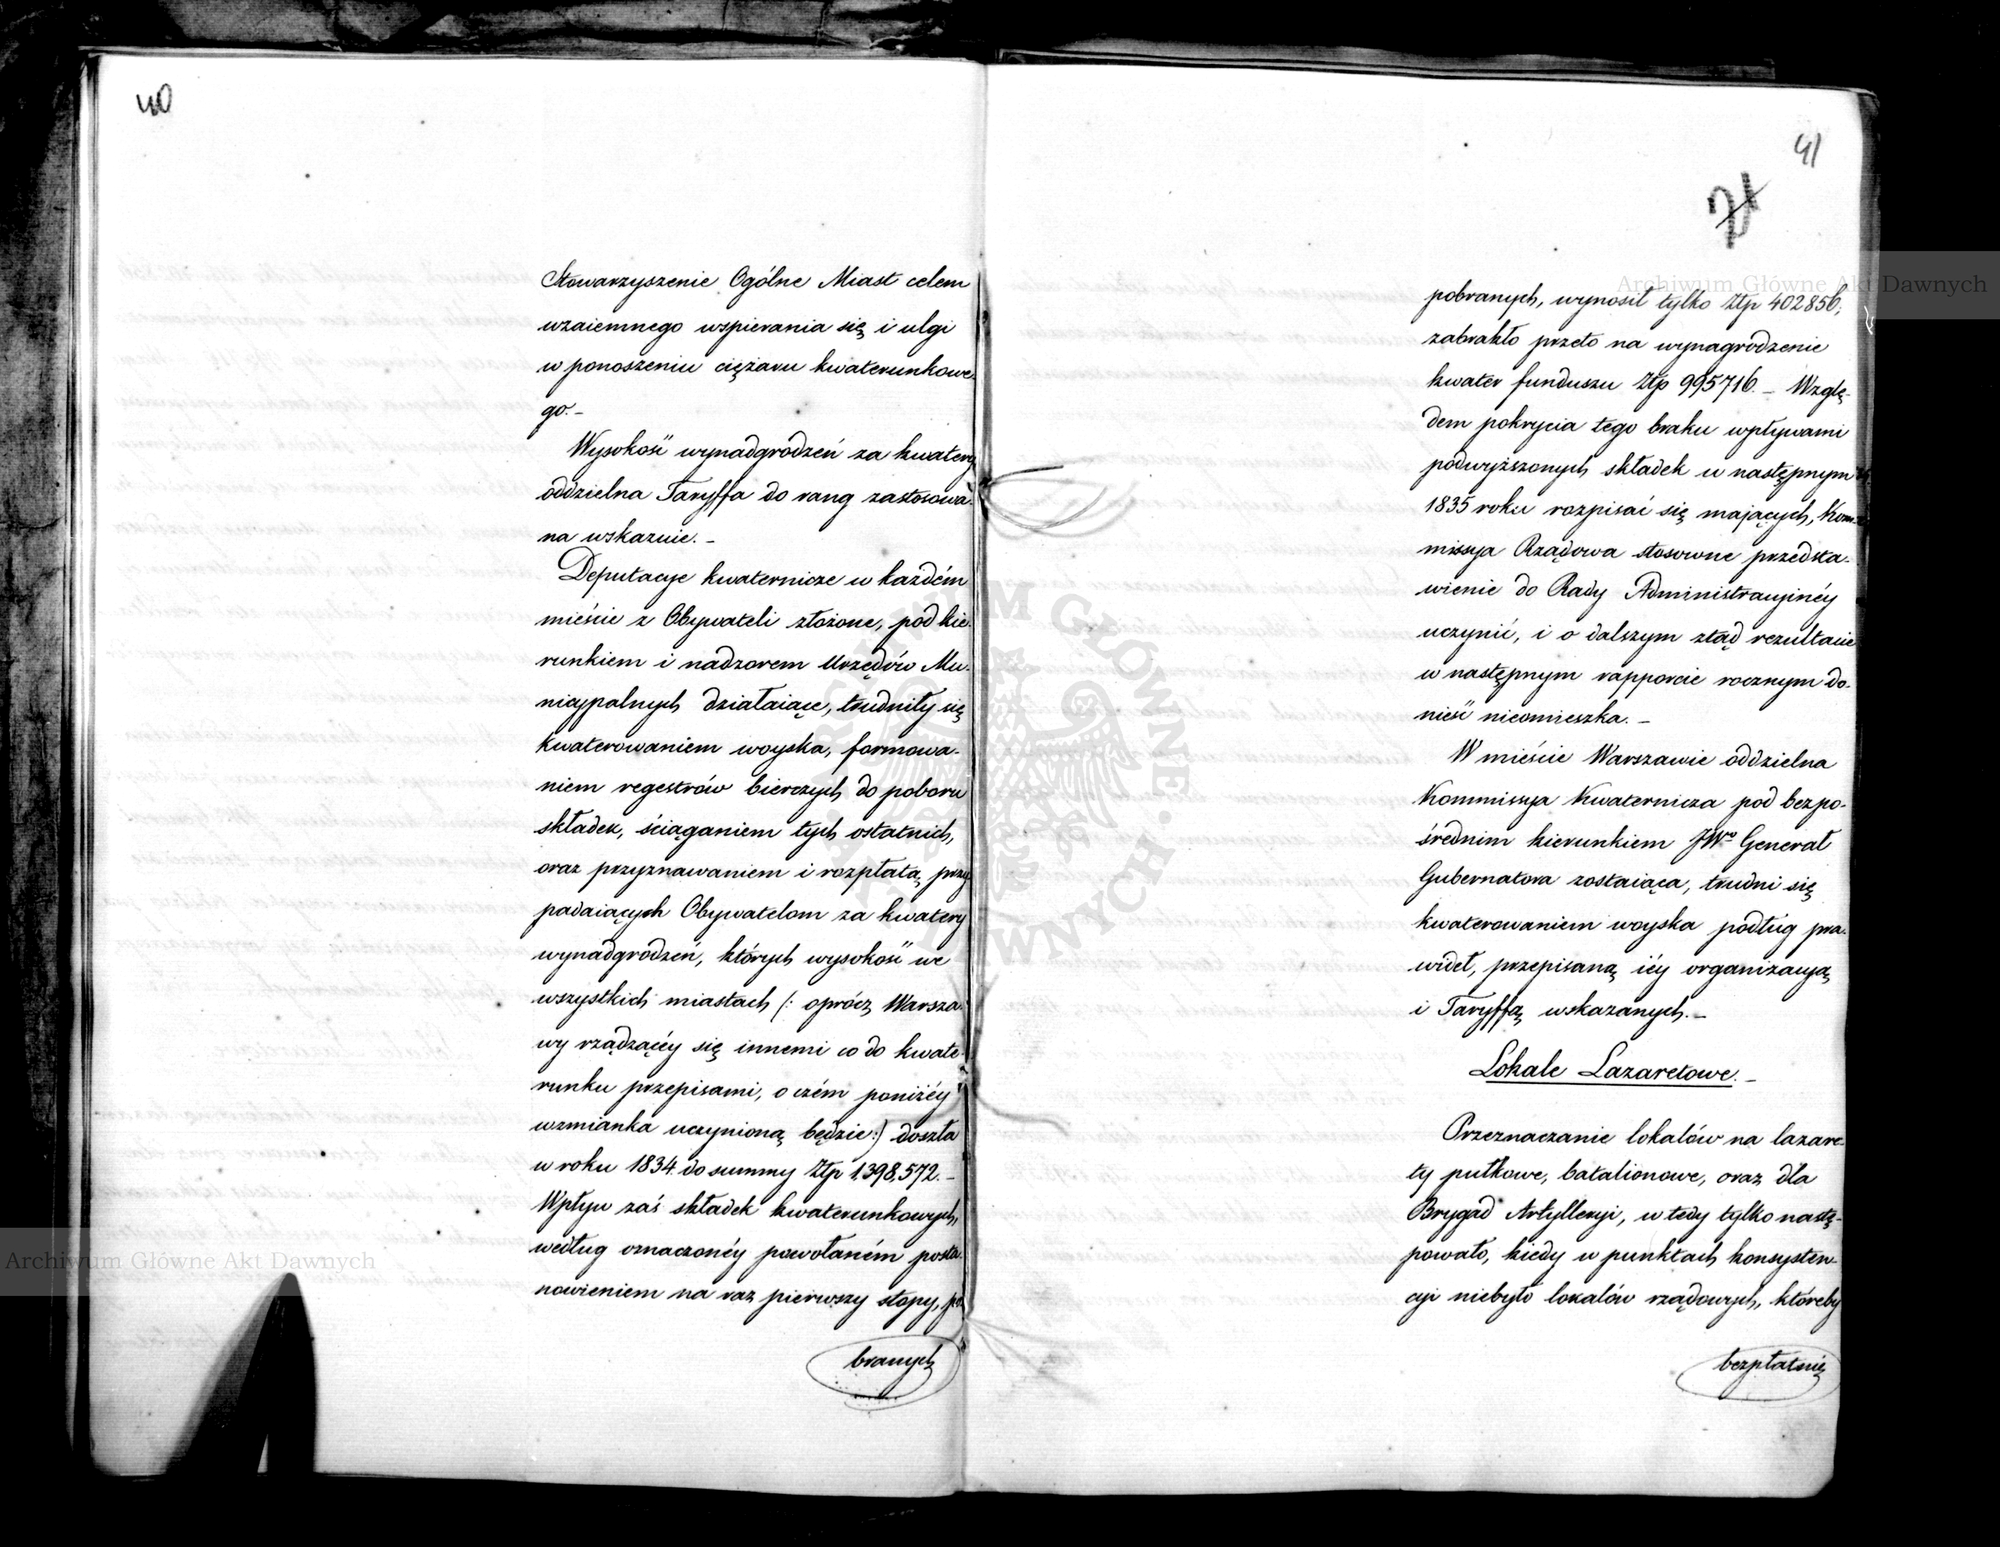 40
Stowarzyszenie Ogólne Miast celem
wzaiemnego wspierania się i ulgi
w ponoszeniu ciężaru kwaterunkowe-
go.-
Wysokość wynadgrodzeń za kwatery
oddzielna Taryffa do rang zastosowa-
na wskazuie.-
Deputacye kwaternicze w każdém
mieście z Obywateli złożone, pod kie-
runkiem i nadzorem Urzędów Mu-
nicypalnych działaiące, trudniły się
kwaterowaniem woyska, formowa-
niem regestrów bierczych do poboru
składek, ściąganiem tych ostatnich,
oraz przyznawaniem i rozpłatą przy-
padaiących Obywatelom za kwatery
wynadgrodzeń, których wysokość we
wszystkich miastach (: oprócz Warsza-
wy rządzącéy się innemi co do kwate-
runku przepisami, o czém poniżéy
wzmianka uczynioną będzie:) doszła
w roku 1834 do summy Złp 1,398,572.-
Wpływ zaś składek kwaterunkowych,
według oznaczonéy powołaném posta-
nowieniem na raz pierwszy stopy, po-
branych
41
21
pobranych, wynosił tylko Złp 402856;
zabrakło przeto na wynagrodzenie
kwater funduszu Złp 995716.- Wzglę-
dem pokrycia tego braku wpływami
podwyższonych składek w następnym
1835 roku rozpisać się mających, Kom-
missya Rządowa stosowne przedsta-
wienie do Rady Administracyinéy
uczynić, i o dalszym ztąd rezultacie
w następnym rapporcie rocznym do-
nieść nieomieszka.-
W mieście Warszawie oddzielna
Kommissya Kwaternicza pod bezpo-
średnim kierunkiem JWo Generał
Gubernatora zostaiąca, trudni się
kwaterowaniem woyska podług pra-
wideł, przepisaną iéy organizacyą
i Taryffą wskazanych.-
Lokale Lazaretowe.-
Przeznaczanie lokalów na lazare-
ty pułkowe, batalionowe, oraz dla
Brygad Artylleryi, w tedy tylko nastę-
powało, kiedy w punktach konsysten-
cyi niebyło lokalów rządowych, któreby
bezpłatnie
Archiwum Główne Akt Dawnych
Archiwum Główne Akt Dawnych